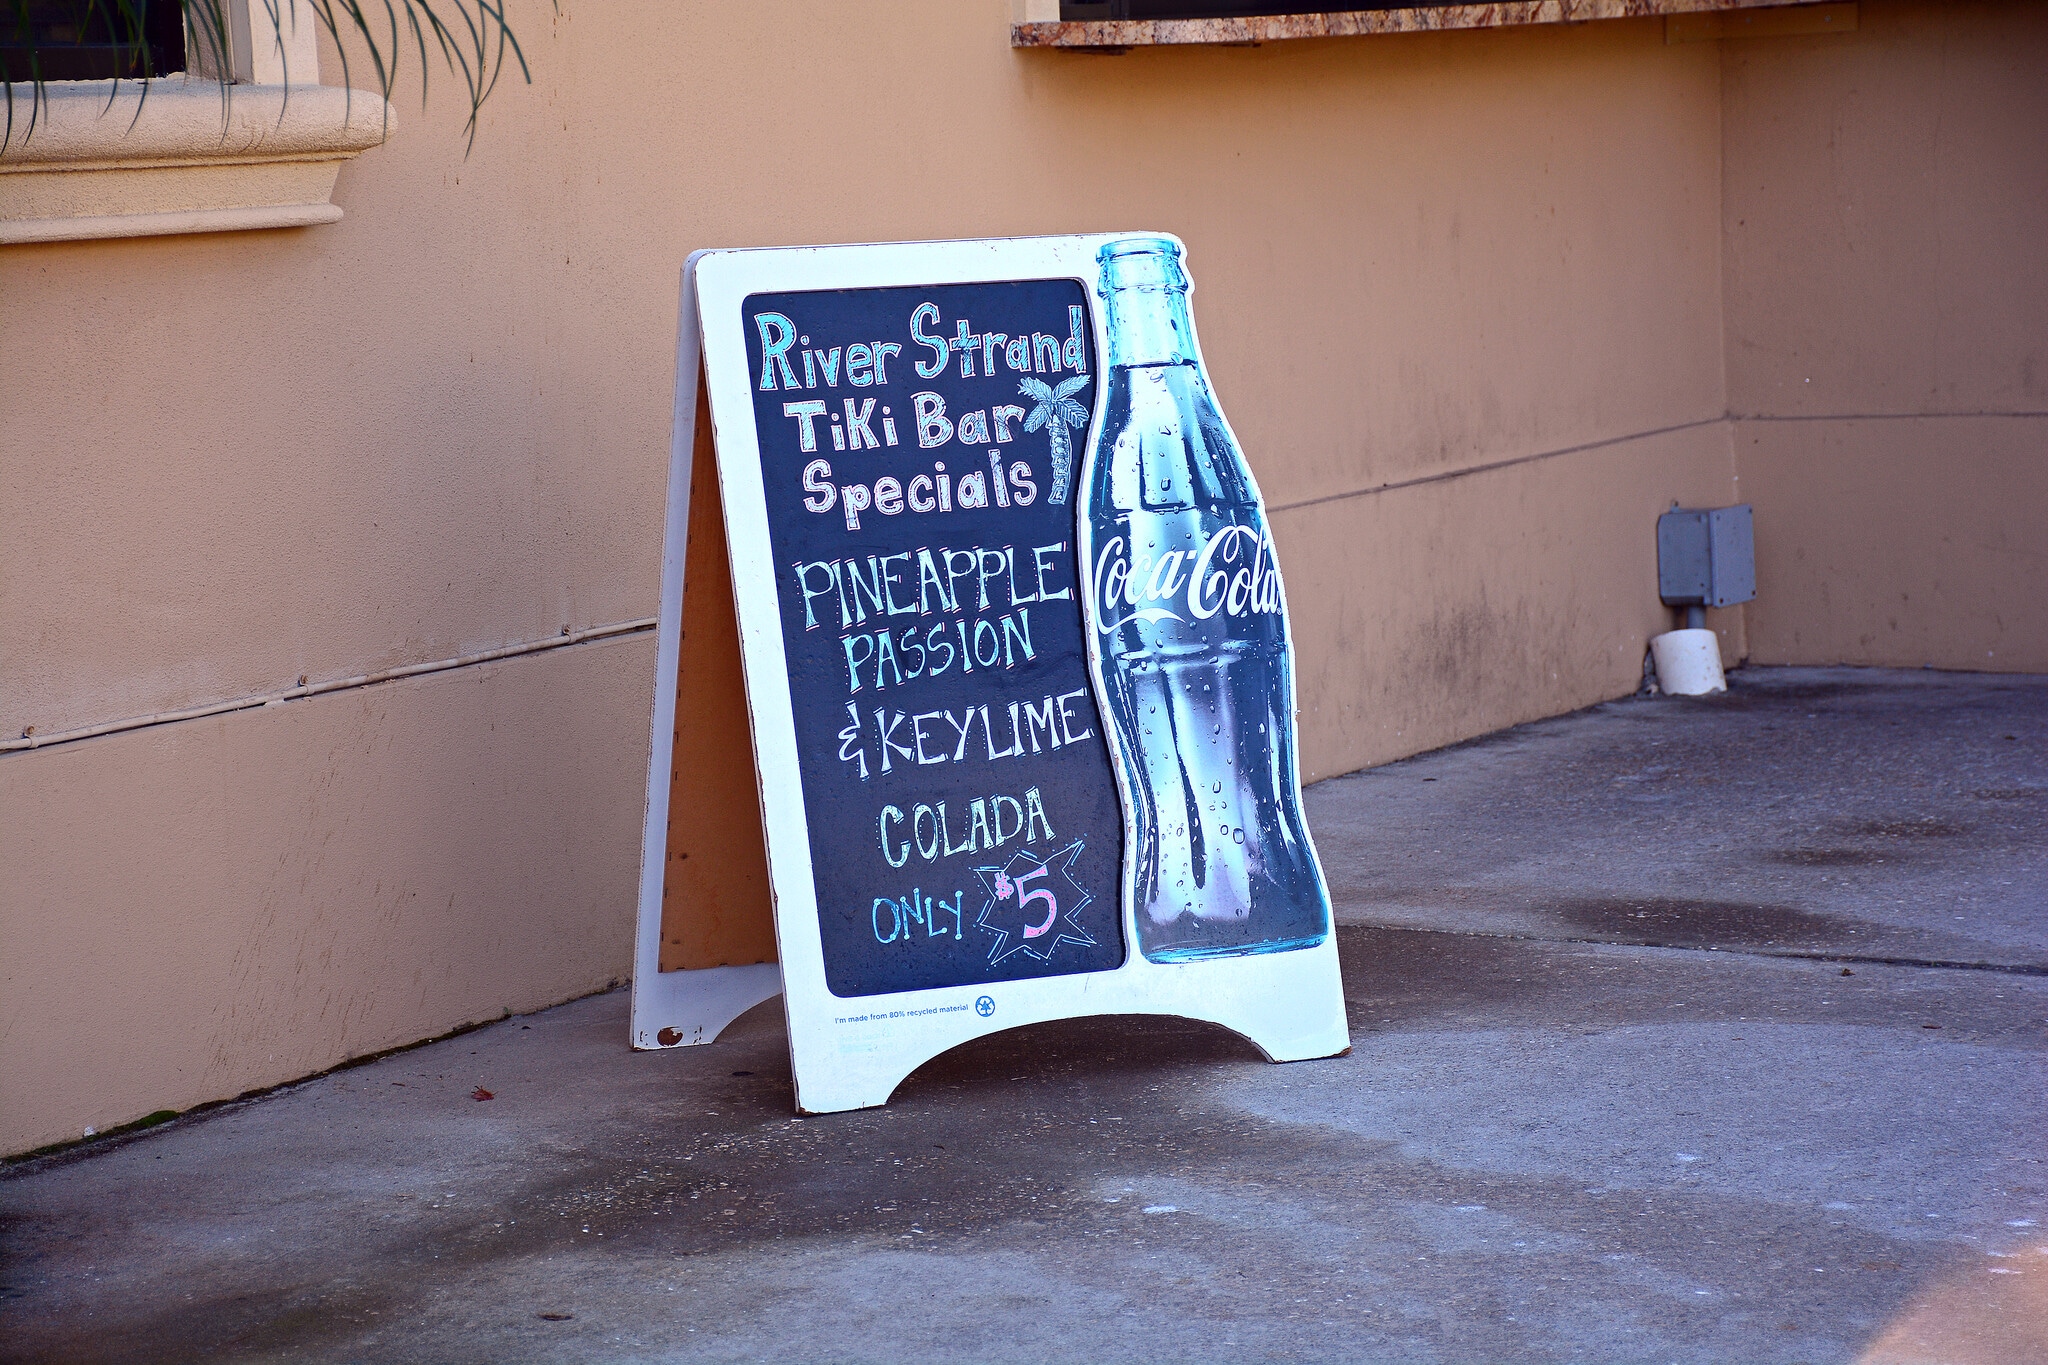 River Strand
Tiki Bar
Specials
PINEAPPLE
PASSION
& KEY LIME
COLADA
ONLY $5
Coca-Cola
I'm made from 80% recycled material